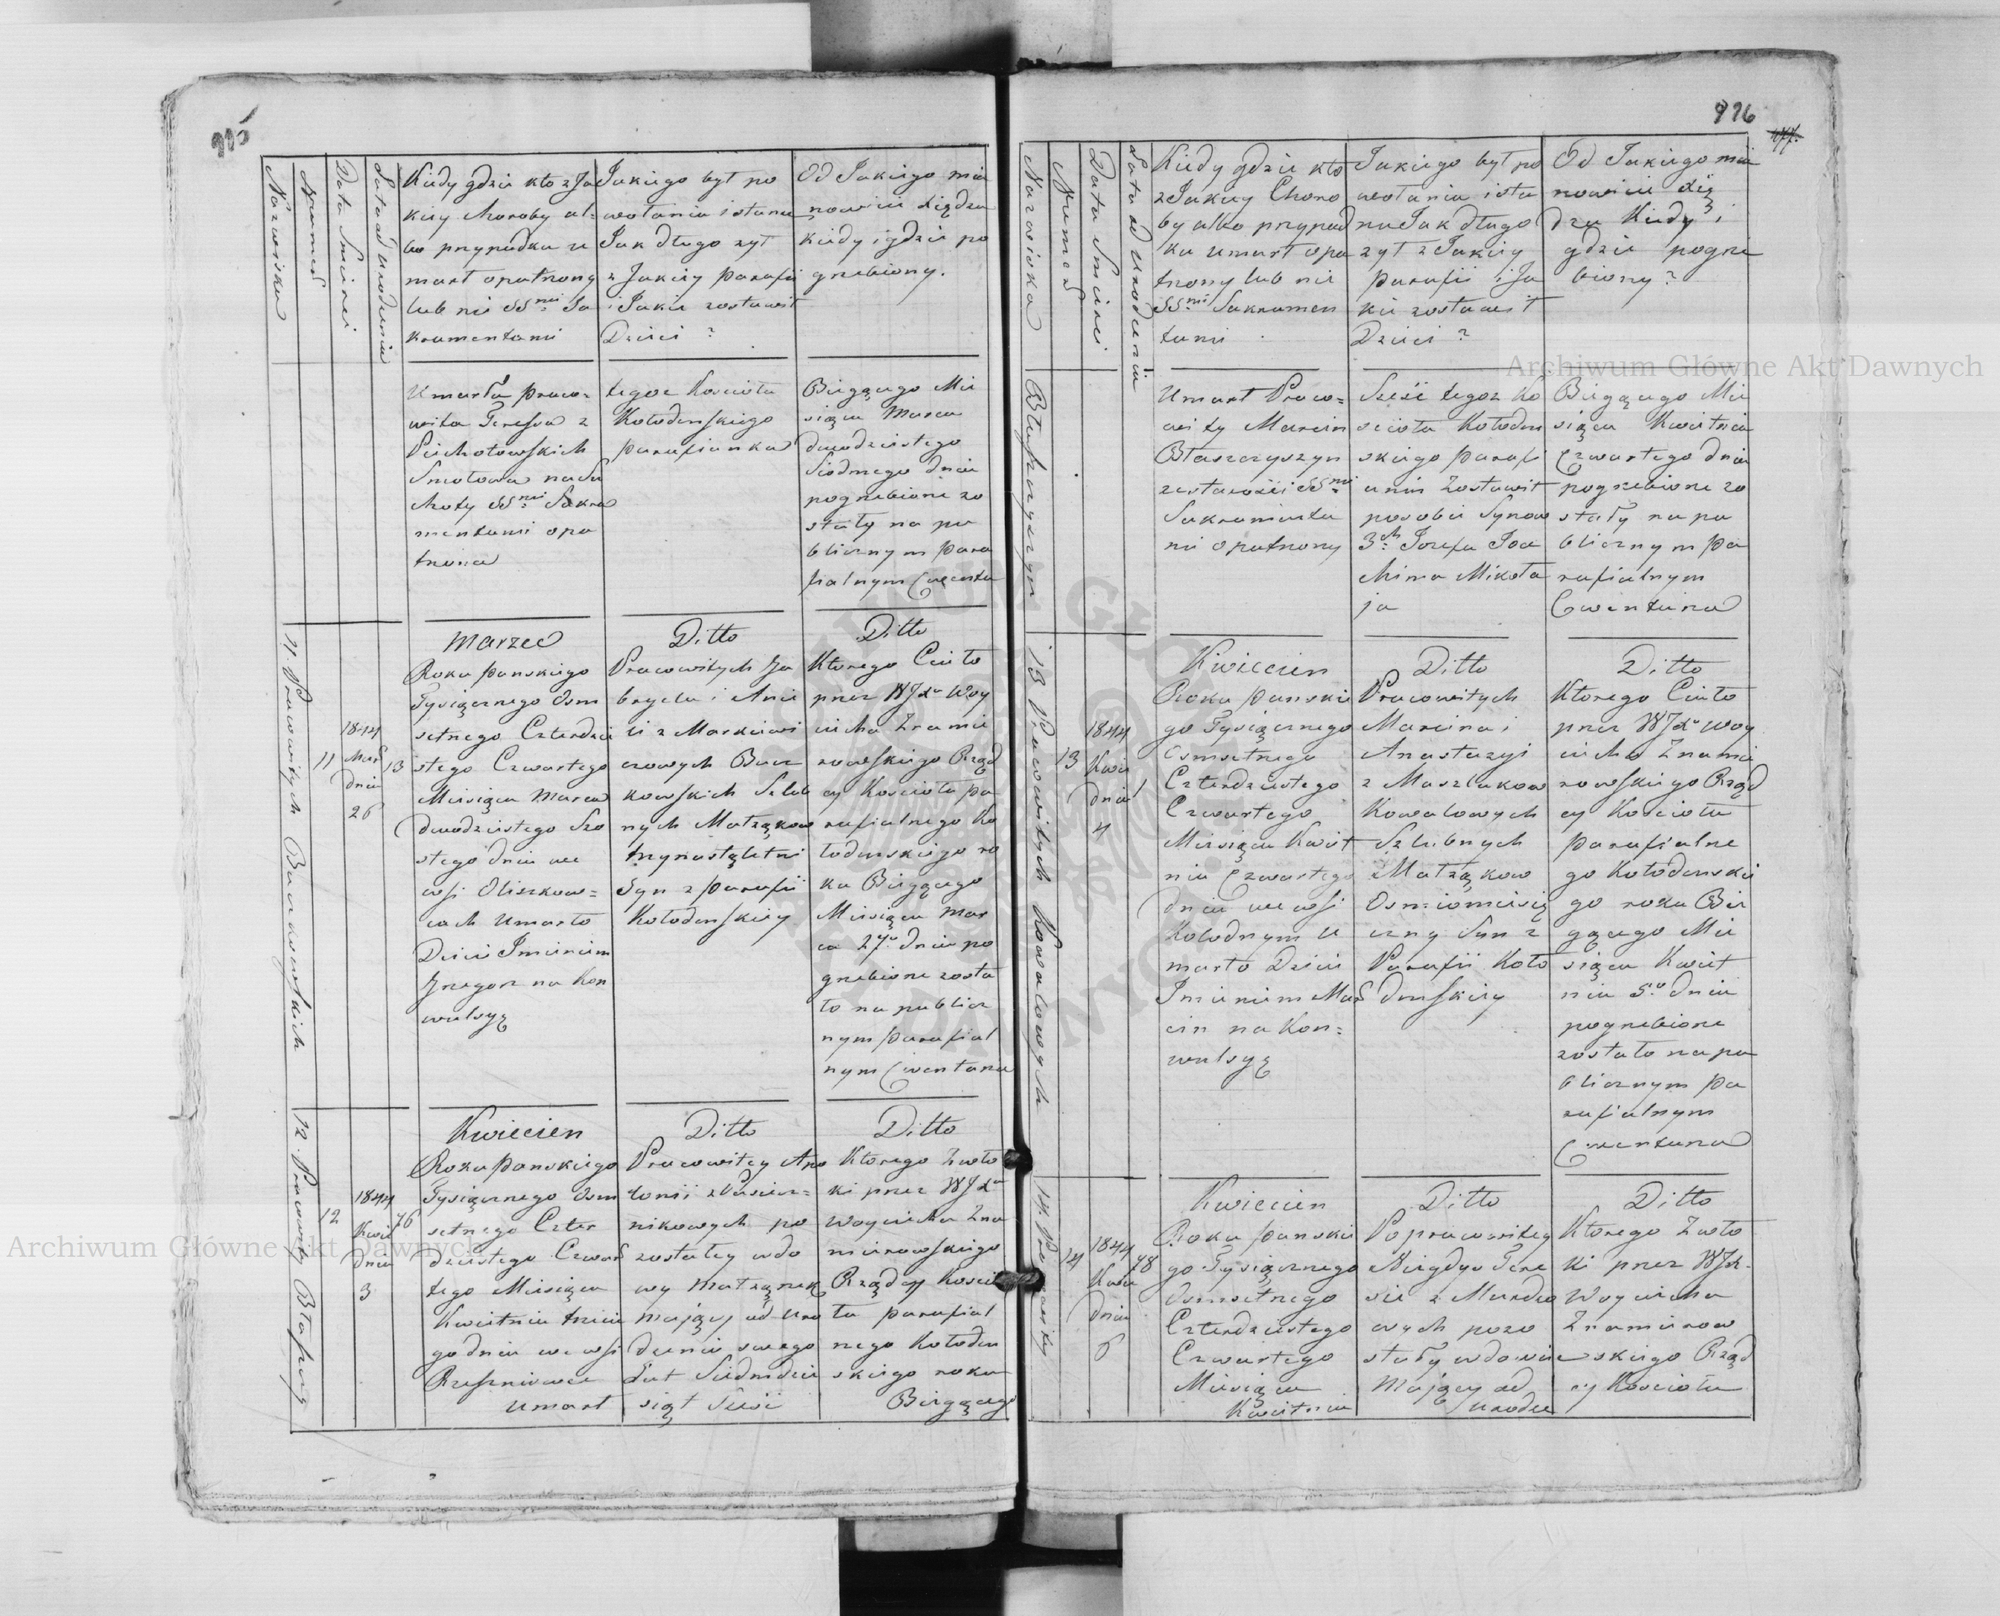 975
Nazwiska
Numer
Data Smierci
Lata od Urodzenia
Kiedy gdzie kto z Ja
kiey Choroby al=
bo przypadku u
marł opatrzony
lub nie SS:mi Sa
kramentami
Jakiego był po
wołania i stanu
Jak długo żył
z Jakiey Parafii
i Jakie zostawił
Dzieci ?
Od Jakiego mia
nowicie Xiędza
kiedy i gdzie po
grzebiony.
Umarła praco=
wita Teressa z
Smotowa na Su
choty SS:mi Sakra
mentami opa
trzona
tegoż Kościoła
Kołodenskiego
parafianka
Bieżącego Mie
siąca Marca
dwudziestego
Siodmego dnia
pogrzebione zo
stały na pu
blicznym para
fialnym Cmentarzu
11. Pracowitych
11
1844
Mar
Dnia
26
13
Marzec
Roku Pańskiego
Tysiącznego Osm
setnego Czterdzie
stego Czwartego
Miesiąca Marca
dwudziestego Szo
stego dnia we
wsi Oliszkow=
cach Umarło
Dzieci Imieniem
Grzegorz na Kon
wulsyę
Ditto
Pracowitych Ga
bryela i Ann
kowskich Szlub
nych Małżąkow
trzynastoletni
Syn z parafii
Kołodenskiey
Ditto
Ktorego Ciało
przez WJXa Woy
ciecha Znamie
rowskiego Rząd
cy Kościoła pa
rafialnego Ko
łodenskiego ro
ku Bieżącego
Miesiąca Mar
ca 27o dnia po
grzebione zosta
ło na publicz
nym parafial
nym Cmentarzu
12. Pracowity Błaszczy
12
1844
Kwie
Dnia
3
76
Kwiecien
Roku Pańskiego
Tysiącznego Osm
setnego Czter
dziestego Czwar
tego Miesiąca
Kwietnia trzecie
go dnia we wsi
Rzeszniowce
Umarł
Ditto
Pracowitey Apo
lonii z
nikowych po
zostałey wdo
wy Małżąnek
Mający od Uro
dzenia swego
Lat Siedmdzie
siąt Sześć
Ditto
Ktorego Zwło
ki przez WJXa
Woyciecha Zna
mierowskiego
Rządcy Kościo
ła parafial
nego Kołoden
skiego roku
Bieżącego
976
477.
Nazwiska
Numer
Data Smierci
Lata od Urodzenia
Kiedy gdzie kto
z Jakiey Choro
by albo przypad
ku umarł opa
trzony lub nie
SS:mi Sakramen
tami
Jakiego był po
wołania i sta
nu Jak długo
żył z Jakiey
Parafii i Ja
kie zostawił
Dzieci ?
Od Jakiego mia
nowicie Xię
dza Kiedy i
gdzie pogrze
biony ?
Błaszczyszyn
Umarł Praco=
wity Marcin
Błaszczyszyn
z starości SS:mi
Sakramenta
mi opatrzony
Sześć tegoż Ko
ścioła Kołoden
skiego parafi
anin Zostawił
posobie Synow
3ch Jozefa Joa
chima Mikoła
ja
Bieżącego Mie
siąca Kwietnia
Czwartego dnia
pogrzebione zo
stały na pu
blicznym pa
rafialnym
Cmentarzu
13 Pracowitych Kowalowych
13
1844
Kwie
Dnia
4
Kwiecien
Roku Pańskie
go Tysiącznego
Osmsetnego
Czterdziestego
Czwartego
Miesiąca Kwiet
nia Czwartego
dnia we wsi
Kołodnym U
marło Dziecie
Imieniem Mar
cin na Kon=
wulsyę
Ditto
Pracowitych
Marcina i
Anastazyi
z Maszlukow
Kowalowych
Szlubnych
Małżąkow
Osmiomiesię
czny Syn z
Parafii Koło
denskiey
Ditto
Ktorego Ciało
przez WJXa Woy
ciecha Znamie
rowskiego Rząd
cy Kościoła
parafialne
go Kołodenskie
go roku Bie
żącego Mie
siąca Kwiet
nia 5o dnia
pogrzebione
zostało na pu
blicznym pa
rafialnym
Cmentarzu
14
1844
Kwie
Dnia
6
78
Kwiecien
Roku Pańskie
go Tysiącznego
Osmsetnego
Czterdziestego
Czwartego
Miesiąca
Kwietnia
Ditto
Po pracowitey
Niegdys Tere
sie z
wych pozo
stały wdowiec
Mający od
Urodze
Ditto
Ktorego Zwło
ki przez WJX.
Woyciecha
Znamierow
skiego Rząd
cy Kościoła
Archiwum Główne Akt Dawnych
Archiwum Główne Akt Dawnych